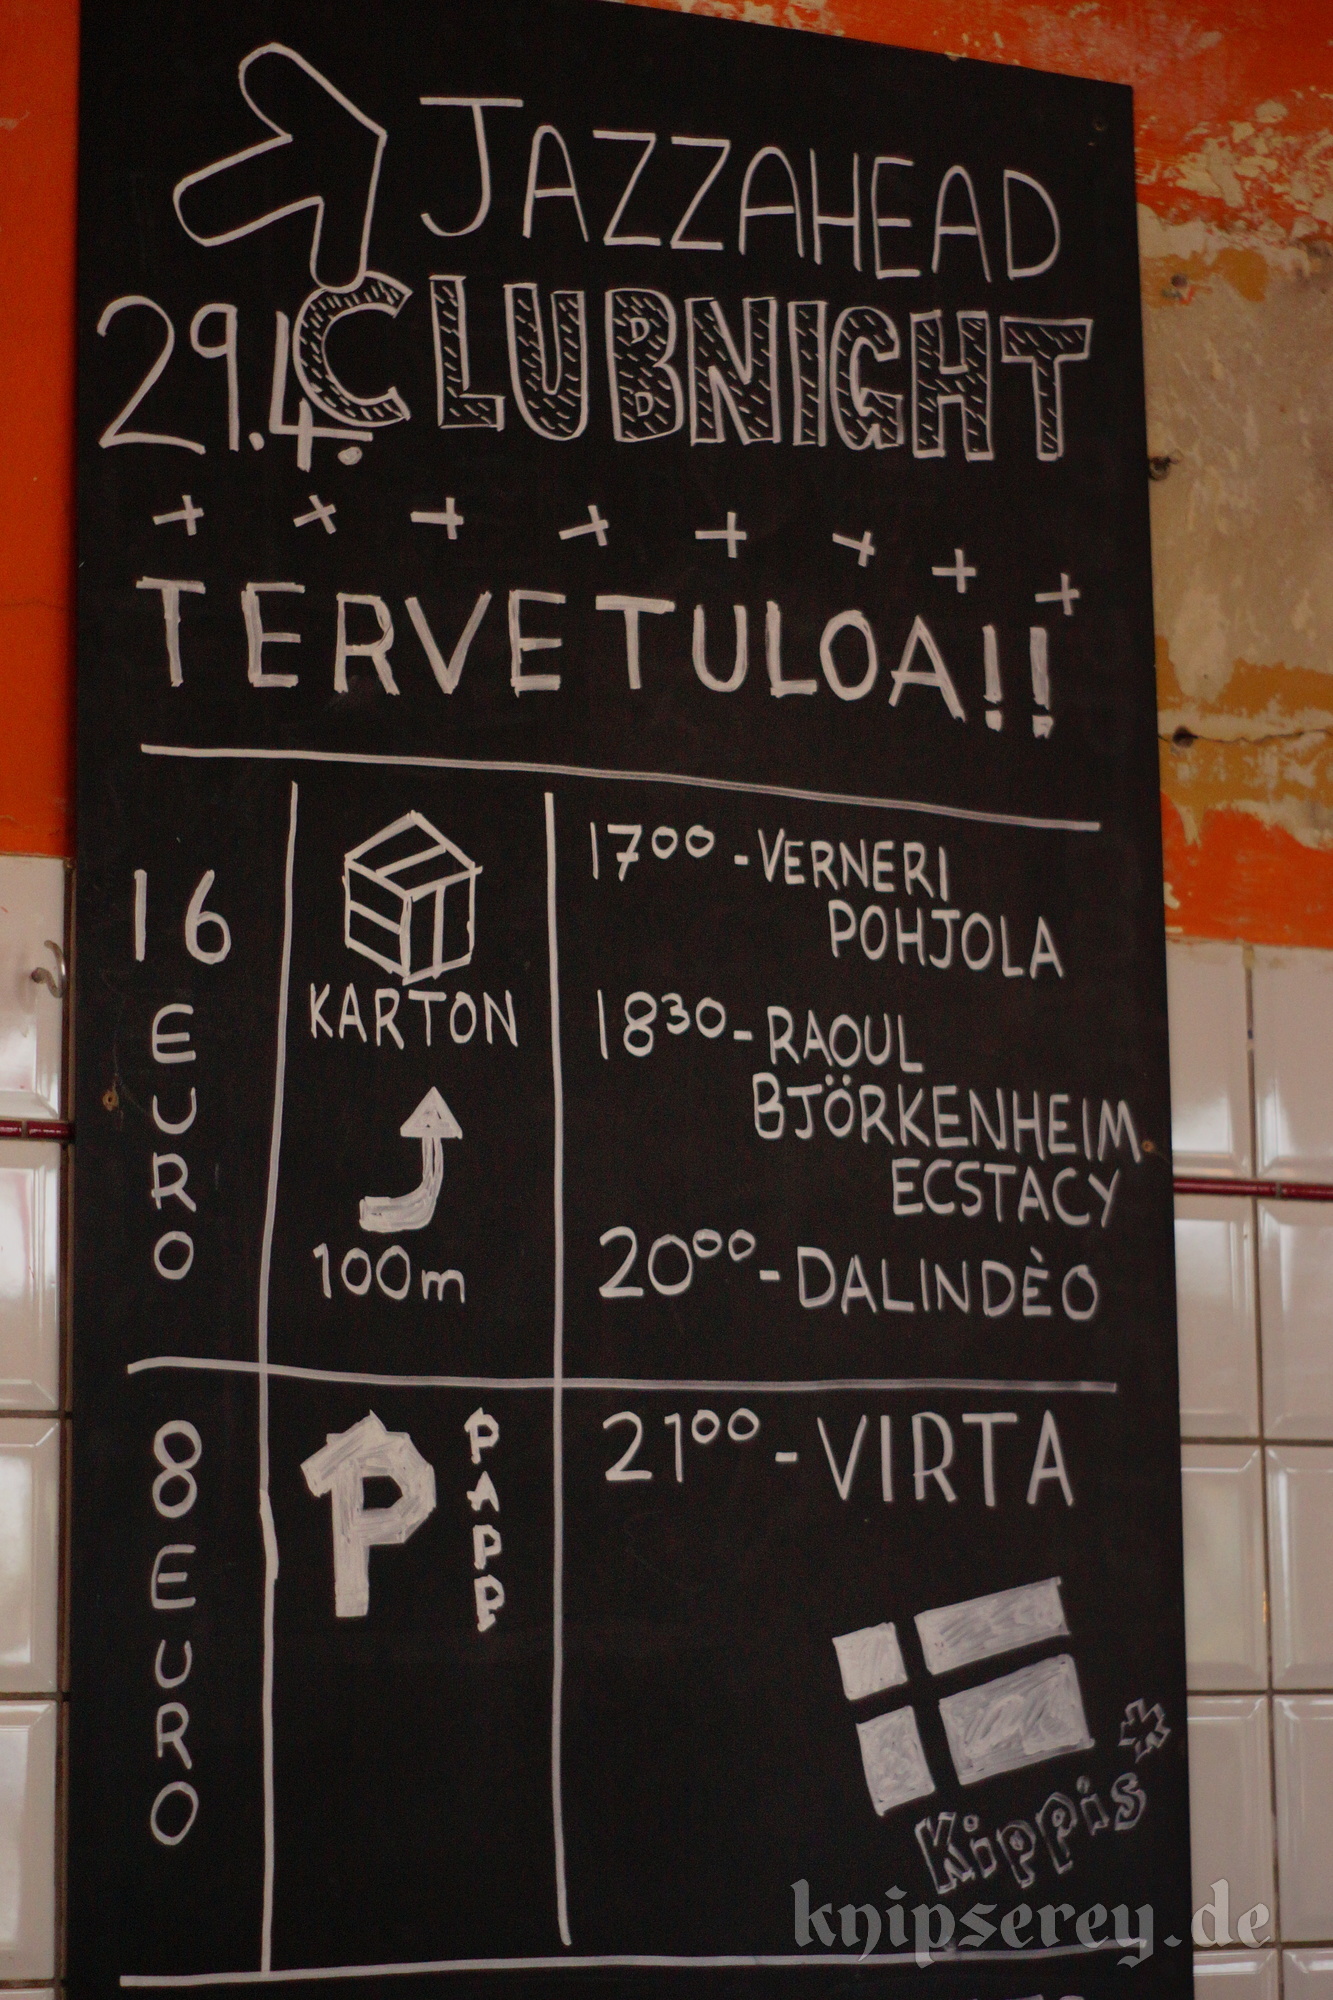 JAZZAHEAD
29.4. CLUBNIGHT
TERVETULOA!!
16 EURO
KARTON
100m
17⁰⁰ - VERNERI
POHJOLA
18³⁰ - RAOUL
BJÖRKENHEIM
ECSTACY
20⁰⁰ - DALINDÈO
8 EURO
P
PAPP
21⁰⁰ - VIRTA
Kippis*
knipserey.de